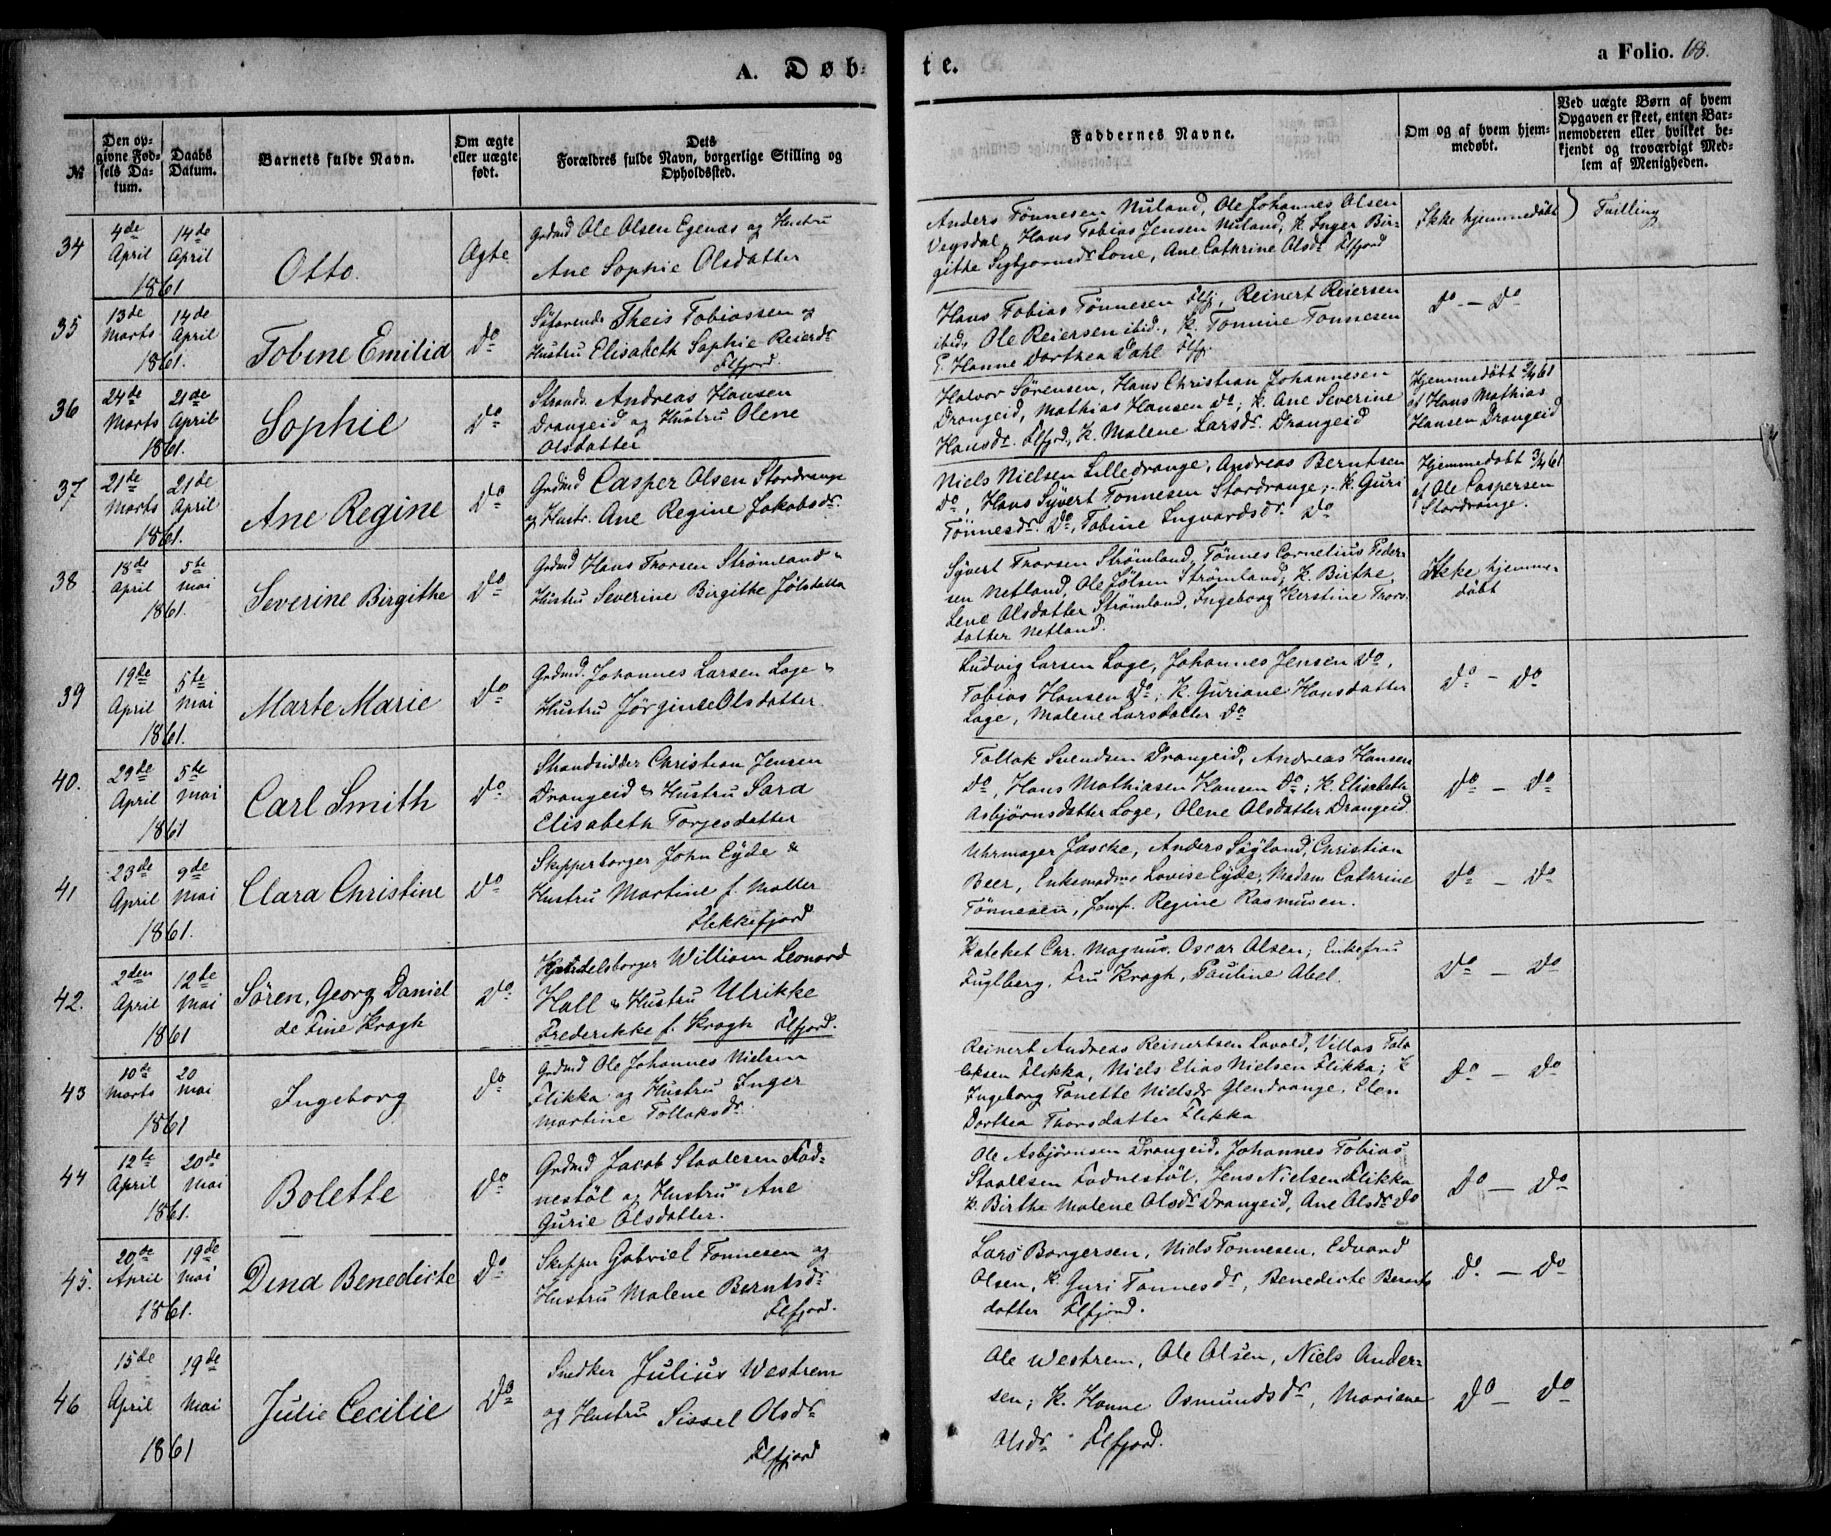 A. Døbte.
a Folio. 68.
№
Den opgivne Fødsels Datum.
Daabs Datum.
Barnets fulde Navn.
Om ægte eller uægte født.
Dets Forældres fulde Navn, borgerlige Stilling og Opholdssted.
Faddernes Navne.
Om og af hvem hjemmedøbt.
Ved uægte Børn af hvem Opgaven er skeet, enten Barnemoderen eller hvilket bekjendt og troværdigt Medlem af Menigheden.
34
4de April 1861
14de April
Otto.
Ægte
Grdmd Ole Olsen Egenæs og Hustru
Ane Sophie Olsdatter
Anders Tönnesen Nuland, Ole Johannes Olsen
Vegsdal, Hans Tobias Jensen Nuland, K. Inger Bir-
gitte Sigbjörnsdr Lone, Ane Cathrine Olsdr Flfjord
Ikke hjemmedöbt
Tvilling
35
13de Marts 1861.
14de April
Tobine Emilia
Do
Söfarende Theis Tobiassen og
Hustru Elisabeth Sophie Reiersdr
Flfjord.
Hans Tobias Tönnesen Flfj, Reinert Reiersen
ibid, Ole Reiersen ibid., K. Tonnine Tonnesen
Hanne Dorthea Dahl Flfj.
Do — Do
36
24de Marts 1861.
21de April
Sophie
Do
Strands. Andreas Hansen
Drangeid og Hustru Olene
Olsdatter
Halvor Sörensen, Hans Christian Johannesen
Drangeid, Mathias Hansen Do; K. Ane Severine
Hansdr. Flfjord, K. Malene Larsdr. Drangeid
Hjemmedöbt 61
af Hans Mathias
Hansen Drangeid
37
21de Marts 1861.
21de April
Ane Regine
Do
Grdmd Casper Olsen Stordrange
og Hustr. Ane Regine Jakobsdr.
Niels Nielsen Lilledrange, Andreas Berntsen
Do, Hans Syvert Tonnesen Stordrange; K. Guri
Tönnesdr. Do, Tobine Ingvardsdr Do
Hjemmedöbt 3/4 61
af Ole Caspersen
Stordrange.
38
18de April 1861.
5te Mai
Severine Birgithe
Do
Grdmd Hans Thorsen Strömland
Hustru Severine Birgithe Jölsdatter
Syvert Thorsen Strömland, Tönnes Cornelius Peder-
sen Netland, Ole Jölsen Strömland; K. Birthe
Lene Olsdatter Strömland, Ingeborg Kerstine Thors-
datter Netland.
Ikke hjemme-
döbt
39
19de April 1861.
5te Mai
Marte Marie
Do
Grdmd. Johannes Larsen Loge &
Hustru Jörgine Olsdatter
Ludvig Larsen Loge, Johannes Jensen Do,
Tobias Hansen Do; K. Guriane Hansdatter
Loge, Malene Larsdatter Do
Do — Do
40.
29de April 1861
5te Mai
Carl Smith
Do
Strandsidder Christian Jensen
Drangeid & Hustru Sara
Elisabeth Torgesdatter
Tollak Svendsen Drangeid, Andreas Hansen
Do, Hans Mathiasen Hansen Do; K. Elisabeth
Asbjörnsdatter Loge, Olene Olsdatter Drangeid.
Do — Do
41
23de April 1861.
9de Mai
Clara Christine
Do
Skipperborger John Eyde &
Hustru Martine f. Moller
Flekkefjord
Uhrmager Jascke, Anders Sögland, Christian
Beer, Enkemadme Lovise Eyde, Madam Cathrine
Tönnesen, Jomf. Regine Rasmusen.
Do — Do
42.
2den April 1861
12te Mai
Sören, Georg Daniel
de Fine Krogh
Do.
Handelsborger William Leonard
Hall & Hustru Ulrikke
Frederikke f. Krogh Flfjord.
Kateket Chr. Magnus. Oscar Olsen; Enkefru
Fuglberg, Fru Krogh, Pauline Abel.
Do — Do
43
10de Marts 1861
20 Mai
Ingeborg
Do
Grdmd Ole Johannes Nielsen
Flikka og Hustru Inger
Martine Tollaksdr.
Reinert Andreas Reinertsen Lavold, Villas Tol-
laksen Flikka, Niels Elias Nielsen Flikka; K
Ingeborg Tonette Nielsdr Glendrange, Elen
Dorthea Thorsdatter Flikka
Do — Do
44
12te April 1861.
20de Mai
Bolette
Do
Grdmd Jacob Staalesen Fod-
nestöl og Hustru Ane
Gurie Olsdatter.
Ole Asbjörnsen Drangeid, Johannes Tobias
Staalesen Fodnestöl, Jens Nielsen Flikka
K. Birthe Malene Olsdr Drangeid, Ane Olsdr Do
Do — Do
45.
20de April 1861.
19de Mai
Dina Benedicte
Do
Skipper Gabriel Tonnesen og
Hustru Malene Berntsdr
Flfjord.
Lars Borgersen, Niels Tonnesen, Edvard
Olsen, K. Guri Tonnesdr, Benedicte Bernts-
datter Flfjord.
Do — Do
46
15de April 1861
19de Mai
Julie Cecilie
Do
Snedker Julius Westrem
og Hustru Sissel Olsdr
Flfjord
Ole Westrem, Ole Olsen, Niels Ander-
sen; K. Hanne Osmundsdr, Mariane
Olsdr Flfjord.
Do — Do